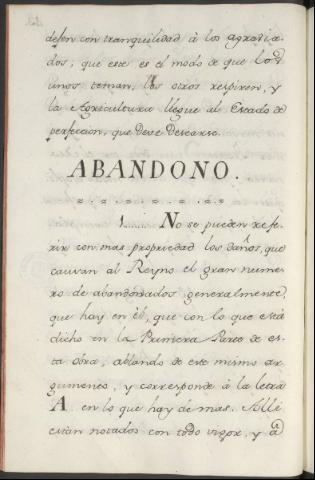 desen con tranquilidad à los agravia-
dos; que este es el modo de que los
unos teman, los otros respiren, y
la Agricultura llegue al Estado de
perfecion, que Deve Desearse.
ABANDONO.
1...... No se pueden refe-
rir con mas propriedad los daños, que
causan al Reyno el gran nume-
ro de abandonados generalmente,
que hay en él, que con lo que está
dicho en la Primera Parte de es-
ta obra, ablando de este mismo ar-
gumento, y corresponde à la letra
A en lo que hay de mas. Alli
estan notados con todo vigor, y a